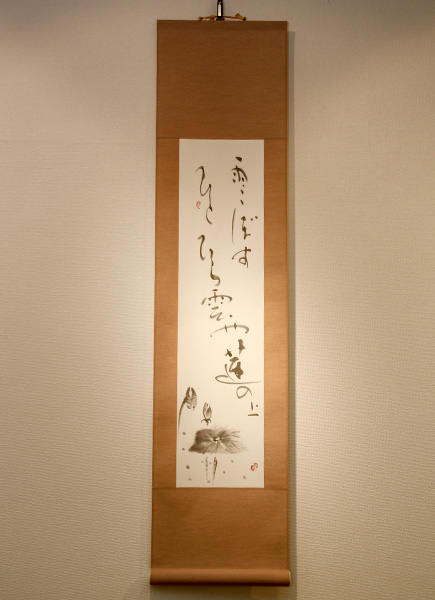 雨こぼす
ひとひら雲や蓮の上